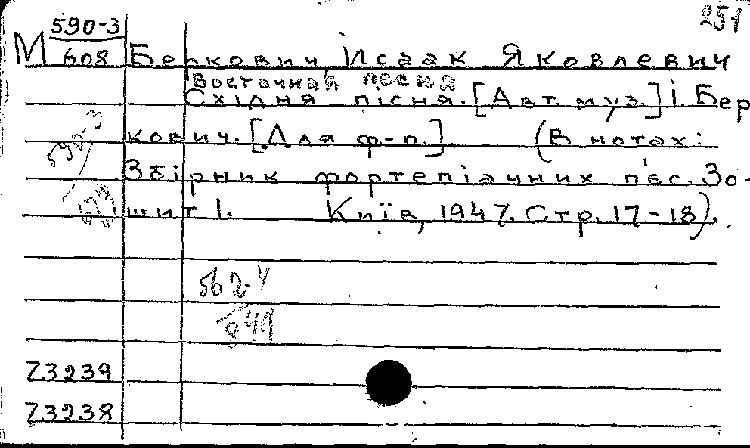 590-3 251
М 608 Беркович, Исаак Яковлевич
Восточная песня
Східня пісня. [Авт. муз.] І. Бер
кович. [Для ф-п.] (В нотах:
Збірник фортепіанних п'єс. Зо-
шит 1. Київ, 1947. Стр. 17-18).
562-4
649
73239
73238